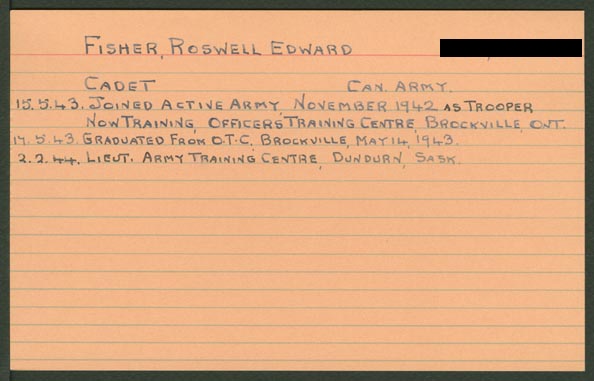 FISHER, ROSWELL EDWARD
CADET CAN. ARMY.
15.5.43. JOINED ACTIVE ARMY, NOVEMBER 1942 AS TROOPER
NOW TRAINING, OFFICERS' TRAINING CENTRE, BROCKVILLE, ONT.
14.5.43. GRADUATED FROM O.T.C. BROCKVILLE, MAY 14, 1943.
2.2.44. LIEUT. ARMY TRAINING CENTRE, DUNDURN, SASK.